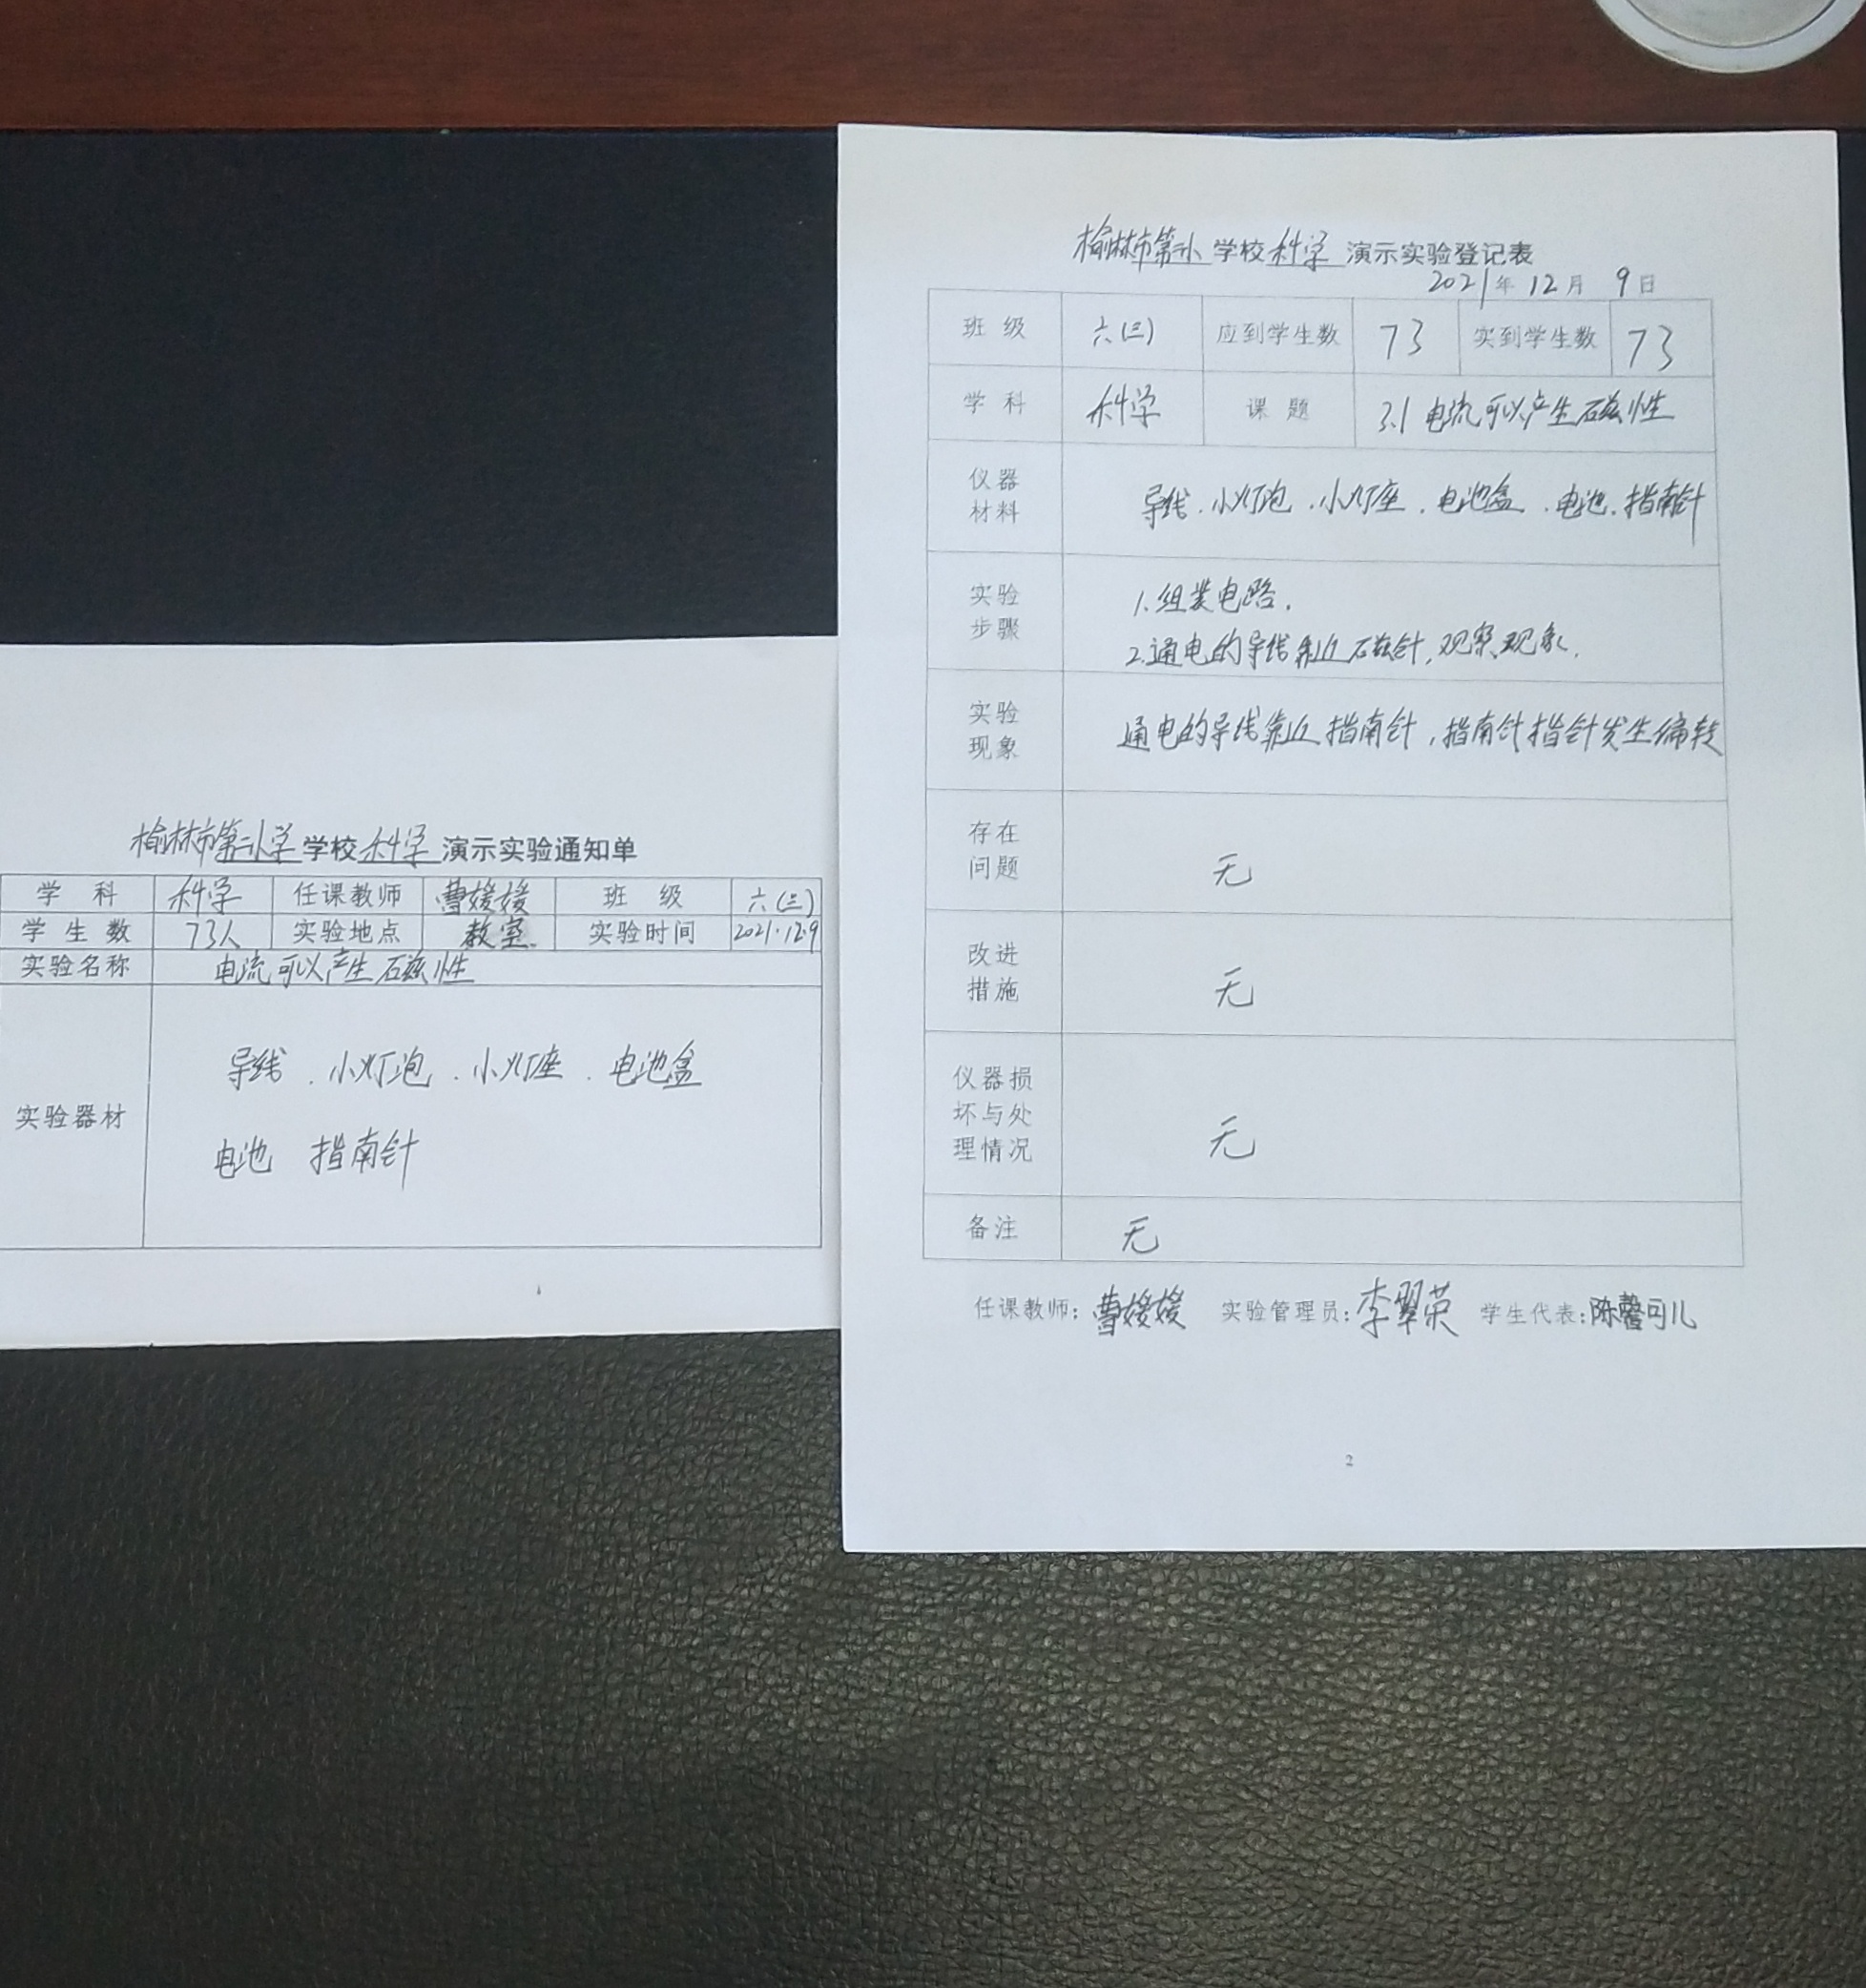 榆林市第二小学学校科学演示实验通知单
学 科 科学 任课教师 曹媛媛 班 级 六(三)
学 生 数 73人 实验地点 教室 实验时间 2021.12.9
实验名称 电流可以产生磁性
实验器材
导线、小灯泡、小灯座、电池盒
电池 指南针
榆林市第二小学校科学演示实验登记表
2021年12月9日
班 级 六(三) 应到学生数 73 实到学生数 73
学 科 科学 课 题 3.1 电流可以产生磁性
仪器
材料
导线、小灯泡、小灯座、电池盒、电池、指南针
实验
步骤
1.组装电路.
2.通电的导线靠近磁针,观察现象.
实验
现象
通电的导线靠近指南针,指南针指针发生偏转
存在
问题
无
改进
措施
无
仪器损
坏与处
理情况
无
备注 无
任课教师:曹媛媛 实验管理员:李翠荣 学生代表:陈馨可儿
2